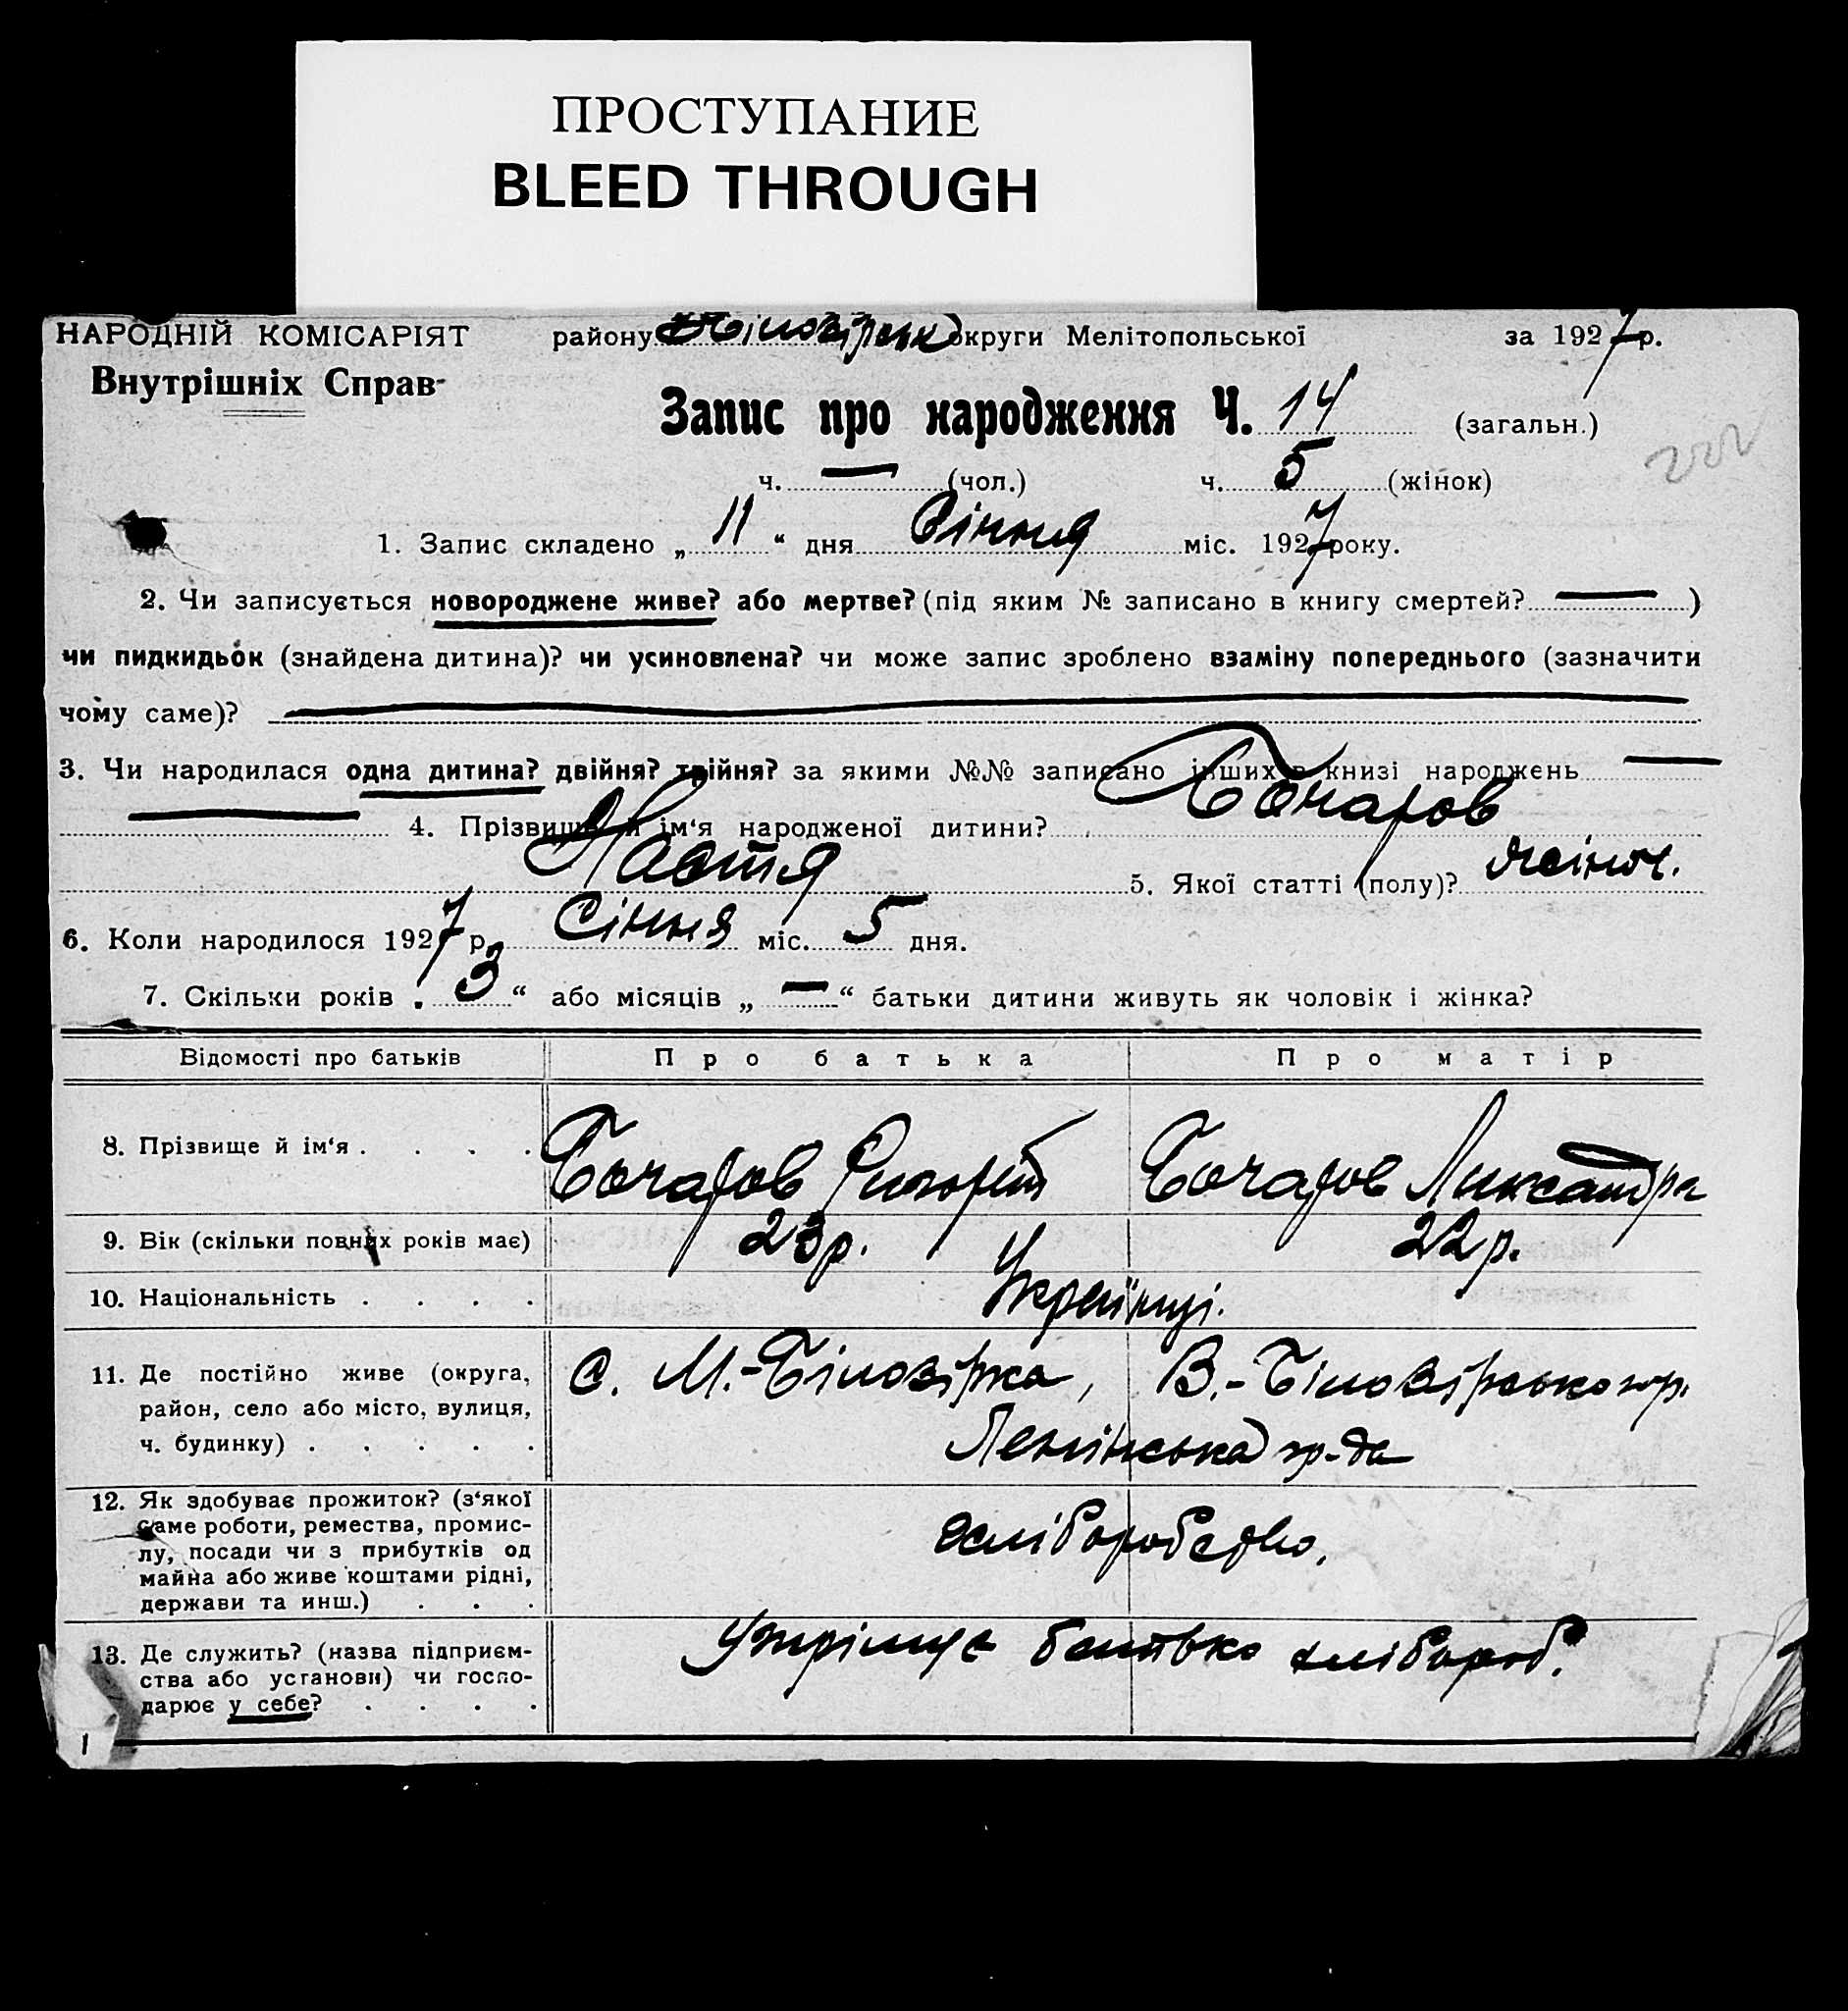 ПРОСТУПАНИЕ
BLEED THROUGH
НАРОДНІЙ КОМІСАРІЯТ району округи Мелітопольської за 1927 р.
Внутрішніх Справ
Запис про народження Ч. 14 (загальн.)
ч. — (чол.) ч. 5 (жінок)
1. Запис складено „ 11 “ дня Січня міс. 1927 року.
2. Чи записується новороджене живе? або мертве? (під яким № записано в книгу смертей? — )
чи пидкидьок (знайдена дитина)? чи усиновлена? чи може запис зроблено взаміну попереднього (зазначити
чому саме)?
3. Чи народилася одна дитина? двійня? трійня? за якими №№ записано інших в книзі народжень —
— 4. Прізвище й ім‘я народженої дитини? Бочаров
Настя 5. Якої статті (полу)? жіноч.
6. Коли народилося 1927 р. Січня міс. 5 дня.
7. Скільки років „ 3 “ або місяців „ — “ батьки дитини живуть як чоловік і жінка?
Відомості про батьків Про батька Про матір
8. Прізвище й ім‘я . . . . Бочаров Бочаров Ликсандра
9. Вік (скільки повних років має) 23р. 22р.
10. Національність . . . . Українці.
11. Де постійно живе (округа, с. М.-Біловірка, В.-Біловірського р.
район, село або місто, вулиця,
ч. будинку) . . . . . Ленінська гр-да
12. Як здобуває прожиток? (з‘якої
саме роботи, ремества, промис-
лу, посади чи з прибутків од хліборобство,
майна або живе коштами рідні,
держави та инш.) . . .
13. Де служить? (назва підприєм- Утрімує батько хлібороб.
ства або установи) чи госпо-
дарює у себе? . . . .
1